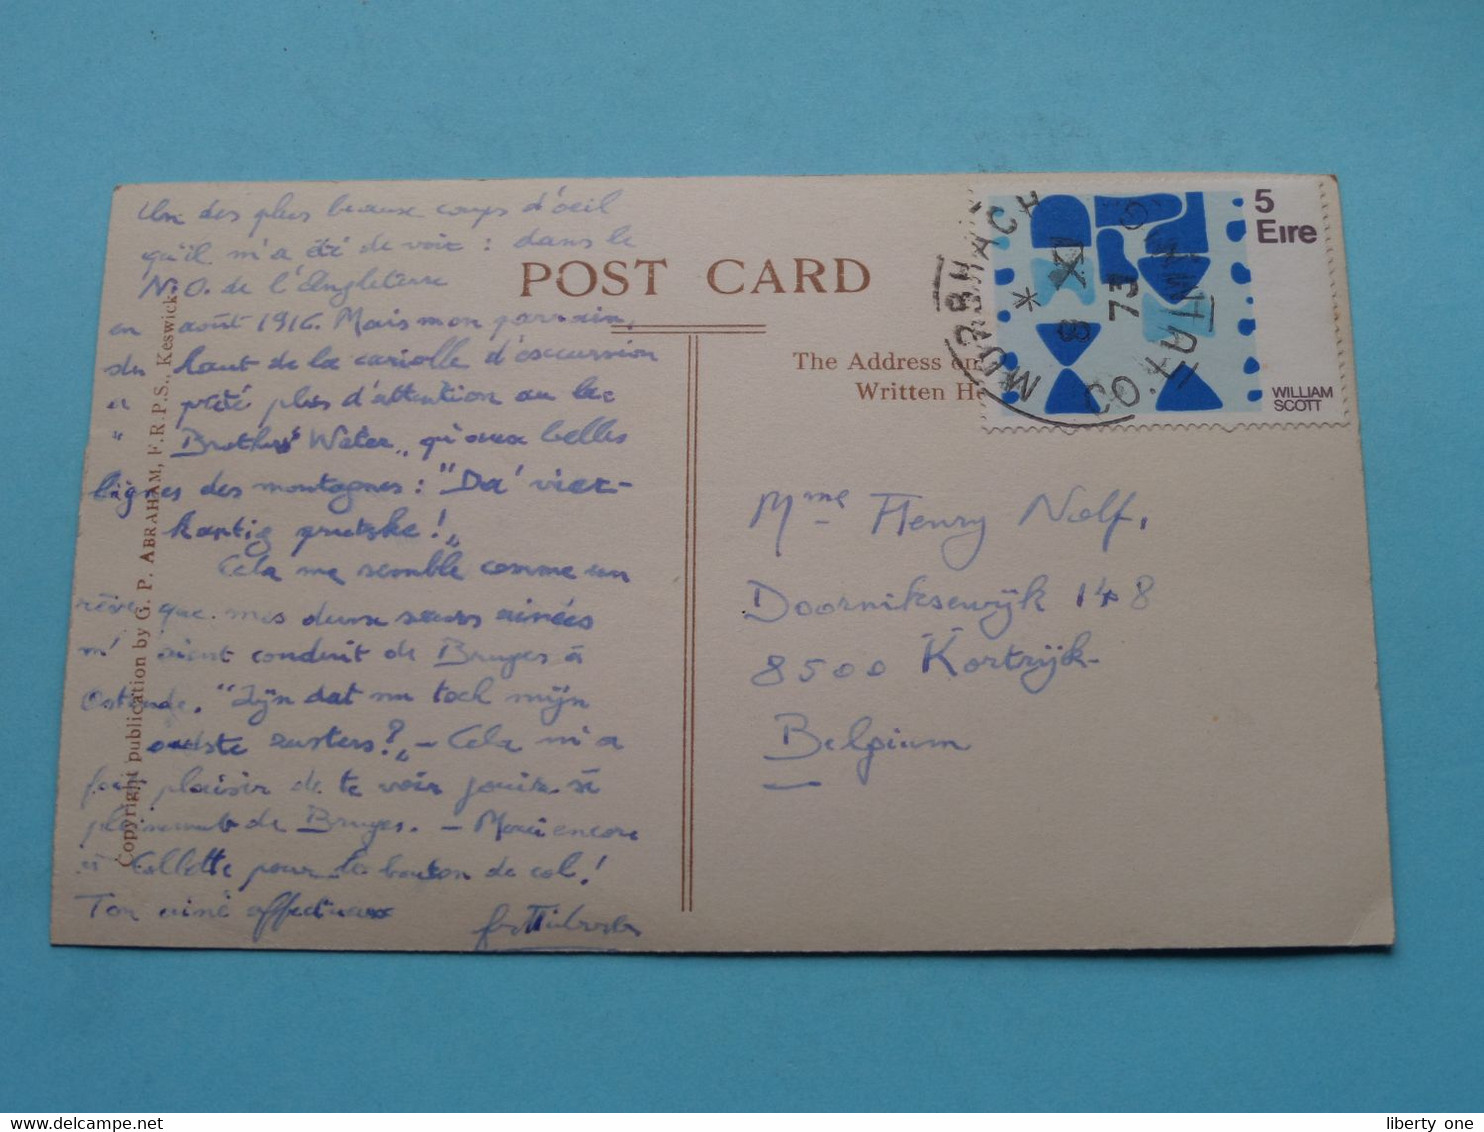 Un des plus beaux coups d'oeil
qu'il m'a été de voir : dans le
N.O. de l'Angleterre
en août 1916. Mais mon parrain,
du haut de la cariolle d'excursion
a prêté plus d'attention au lac
" Brothers Water„ qu'aux belles
lignes des montagnes : "Da' vier-
kantig prutske!„
Cela me semble comme un
rêve que mes deux sœurs ainées
m'aient conduit de Bruges à
Ostende. "Zijn dat nu toch mijn
oudste zusters?„ – Cela m'a
plaisir de te voir jouir si
pleinement de Bruges. – Merci encore
à Collette pour le bouton de col!
Ton ainé affectueux
Copyright publication by G. P. ABRAHAM, F.R.P.S., Keswick.
POST CARD
The Address on
Written He
5
Eire
WILLIAM
SCOTT
MUIRBHEACH
CO.
8 IX 73
Mme Henry Nolf,
Doorniksewijk 148
8500 Kortrijk-
Belgium
liberty one